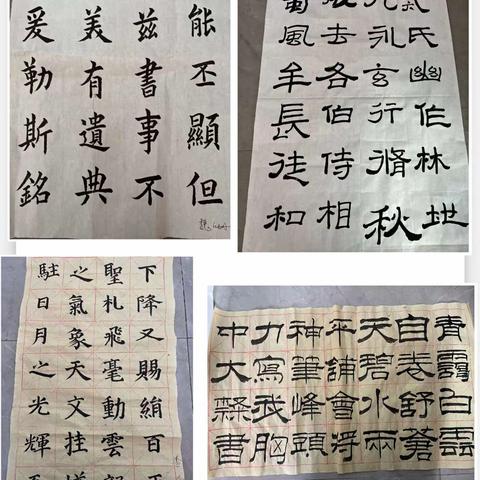 能丕顯但
兹書事不
美有遺典
爰勒斯銘
氏幽伯林地
永玄行脩秋
去各伯侍相
風牟長徒和
下降又賜絹百
聖札飛毫動雲
之氣象天文挂
駐日月之光輝
青靄白雲
自卷舒蒼
天碧水兩
平鋪會將
神筆峰頭
力寫我胸
中大隸書